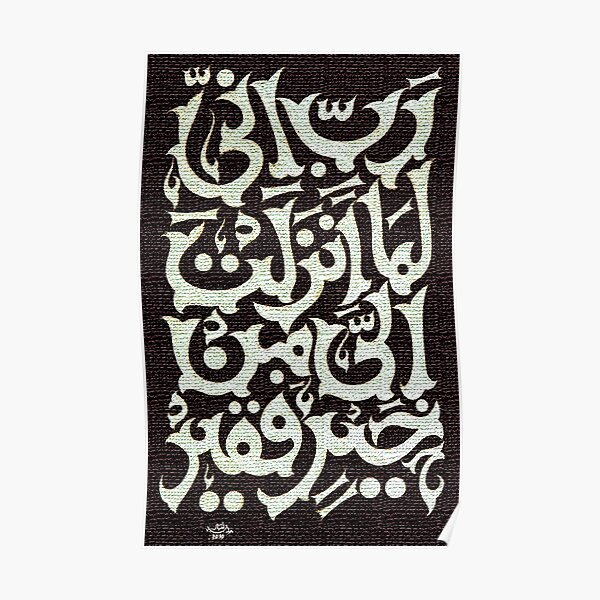 رَبِّ انِّي
لِمَا أَنْزَلْتَ
الَيَّ مِنْ
خَيْرٍ فَقِيرٌ